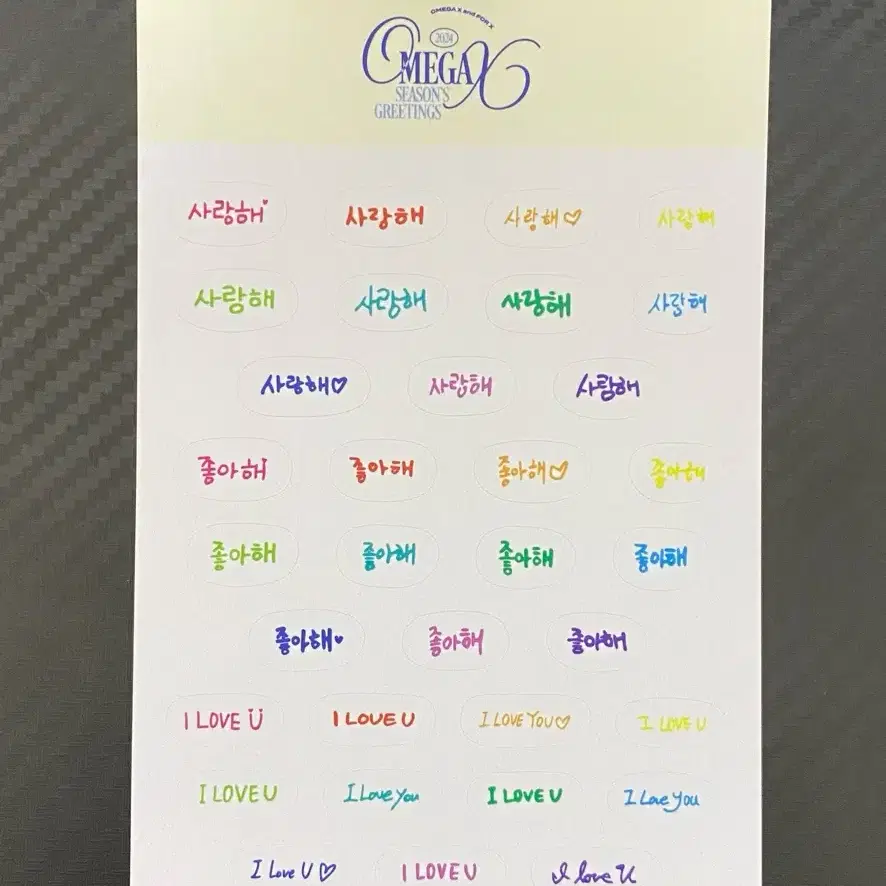 OMEGA X and FOR X
2024
OMEGA X
SEASON'S
GREETINGS
사랑해 사랑해 사랑해♡ 사랑해
사랑해 사랑해 사랑해 사랑해
사랑해♡ 사랑해 사랑해
좋아해 좋아해 좋아해♡ 좋아해
좋아해 좋아해 좋아해 좋아해
좋아해♥ 좋아해 좋아해
I LOVE U I LOVE U I LOVE YOU♡ I LOVE U
I LOVE U I Love you I LOVE U I Love you
I Love U♡ I LOVE U I love U